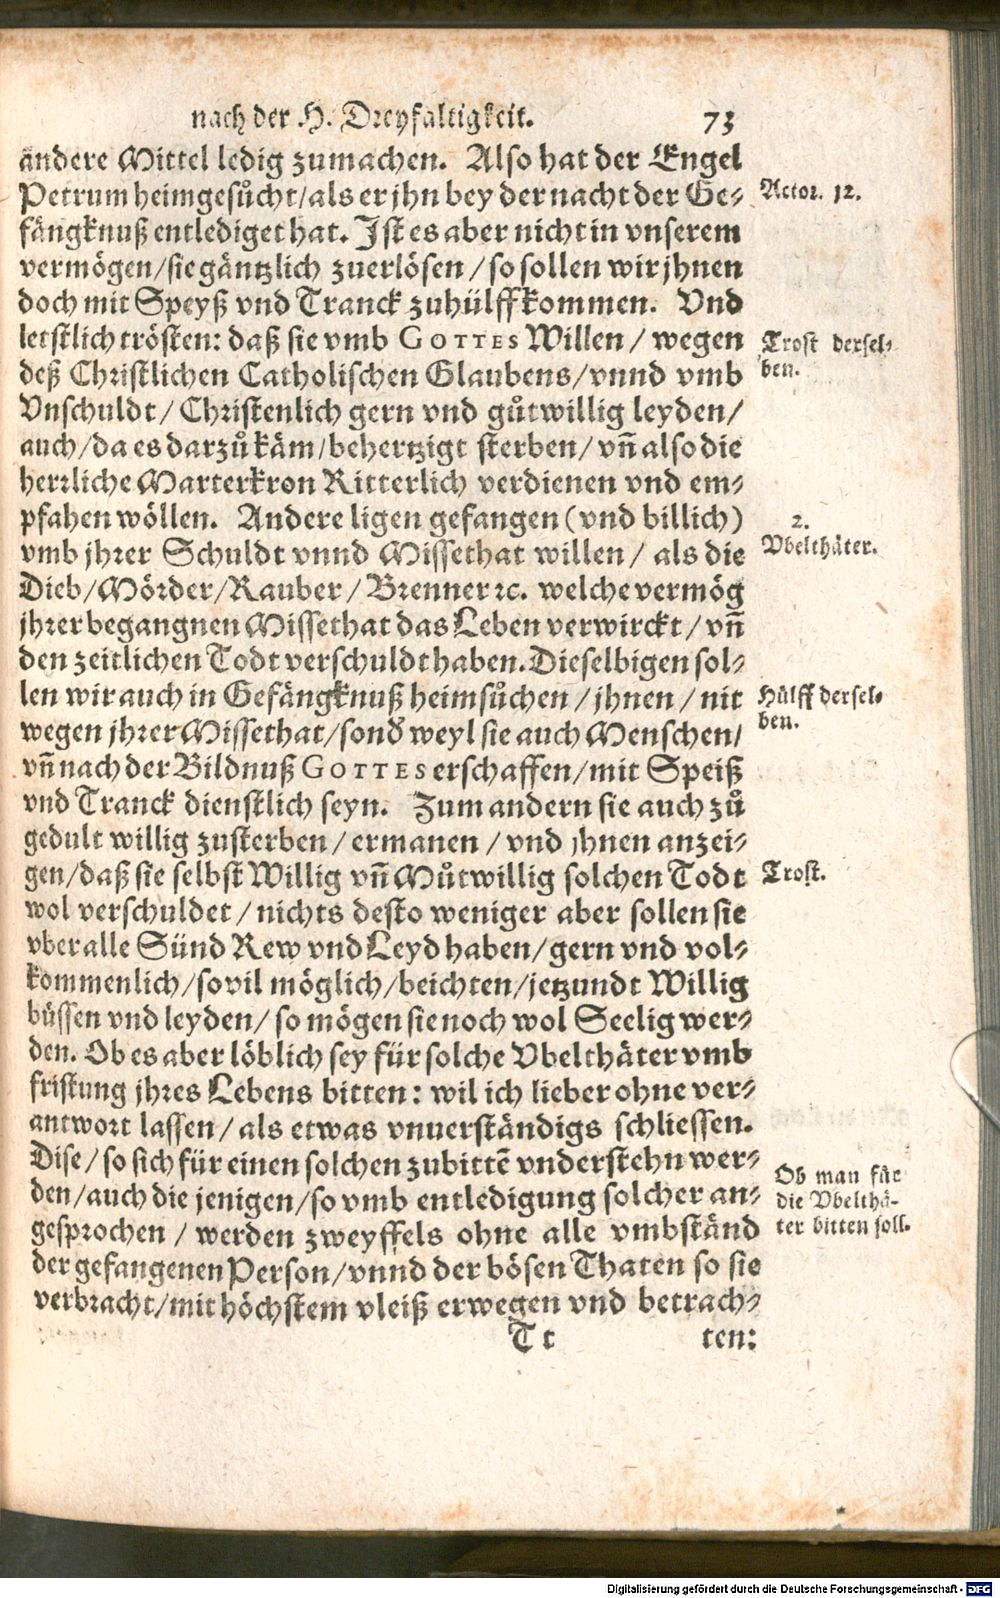 nach der H. Dreyfaltigkeit. 73
andere Mittel ledig zumachen. Also hat der Engel
Petrum heimgesůcht/als er jhn bey der nacht der Ge-
Actor. 12.
fängknuß entlediget hat. Ist es aber nicht in vnserem
vermögen/sie gäntzlich zuerlösen/so sollen wir jhnen
doch mit Speyß vnd Tranck zuhülff kommen. Vnd
letstlich trösten: daß sie vmb GOTTES Willen/ wegen
Trost dersel-
ben.
deß Christlichen Catholischen Glaubens/vnnd vmb
Vnschuldt/Christenlich gern vnd gůtwillig leyden/
auch/da es darzů käm/behertzigt sterben/vñ also die
herrliche Marterkron Ritterlich verdienen vnd em-
pfahen wöllen. Andere ligen gefangen (vnd billich)
2.
Vbelthäter.
vmb jhrer Schuldt vnnd Missethat willen/ als die
Dieb/Mörder/Rauber/Brenner ꝛc. welche vermög
jhrer begangnen Missethat das Leben verwirckt/vñ
den zeitlichen Todt verschuldt haben. Dieselbigen sol-
len wir auch in Gefängknuß heimsůchen/jhnen/nit
Hülff dersel-
ben.
wegen jhrer Missethat/sond̕ weyl sie auch Menschen/
vñ nach der Bildnuß GOTTES erschaffen/mit Speiß
vnd Tranck dienstlich seyn. Zum andern sie auch zů
gedult willig zusterben/ermanen/vnd jhnen anzei-
gen/daß sie selbst Willig vñ Můtwillig solchen Todt
Trost.
wol verschuldet/nichts desto weniger aber sollen sie
vber alle Sünd Rew vnd Leyd haben/gern vnd vol-
kommenlich/so vil möglich/beichten/jetzundt Willig
büssen vnd leyden/so mögen sie noch wol Seelig wer-
den. Ob es aber löblich sey für solche Vbelthäter vmb
fristung jhres Lebens bitten: wil ich lieber ohne ver-
antwort lassen/als etwas vnuerständigs schliessen.
Dise/so sich für einen solchen zubittē vnderstehn wer-
Ob man für
die Vbelthä-
ter bitten soll.
den/auch die jenigen/so vmb entledigung solcher an-
gesprochen/werden zweyffels ohne alle vmbständ
der gefangenen Person/vnnd der bösen Thaten so sie
verbracht/mit höchstem vleiß erwegen vnd betrach-
Tt ten:
Digitalisierung gefördert durch die Deutsche Forschungsgemeinschaft - DFG